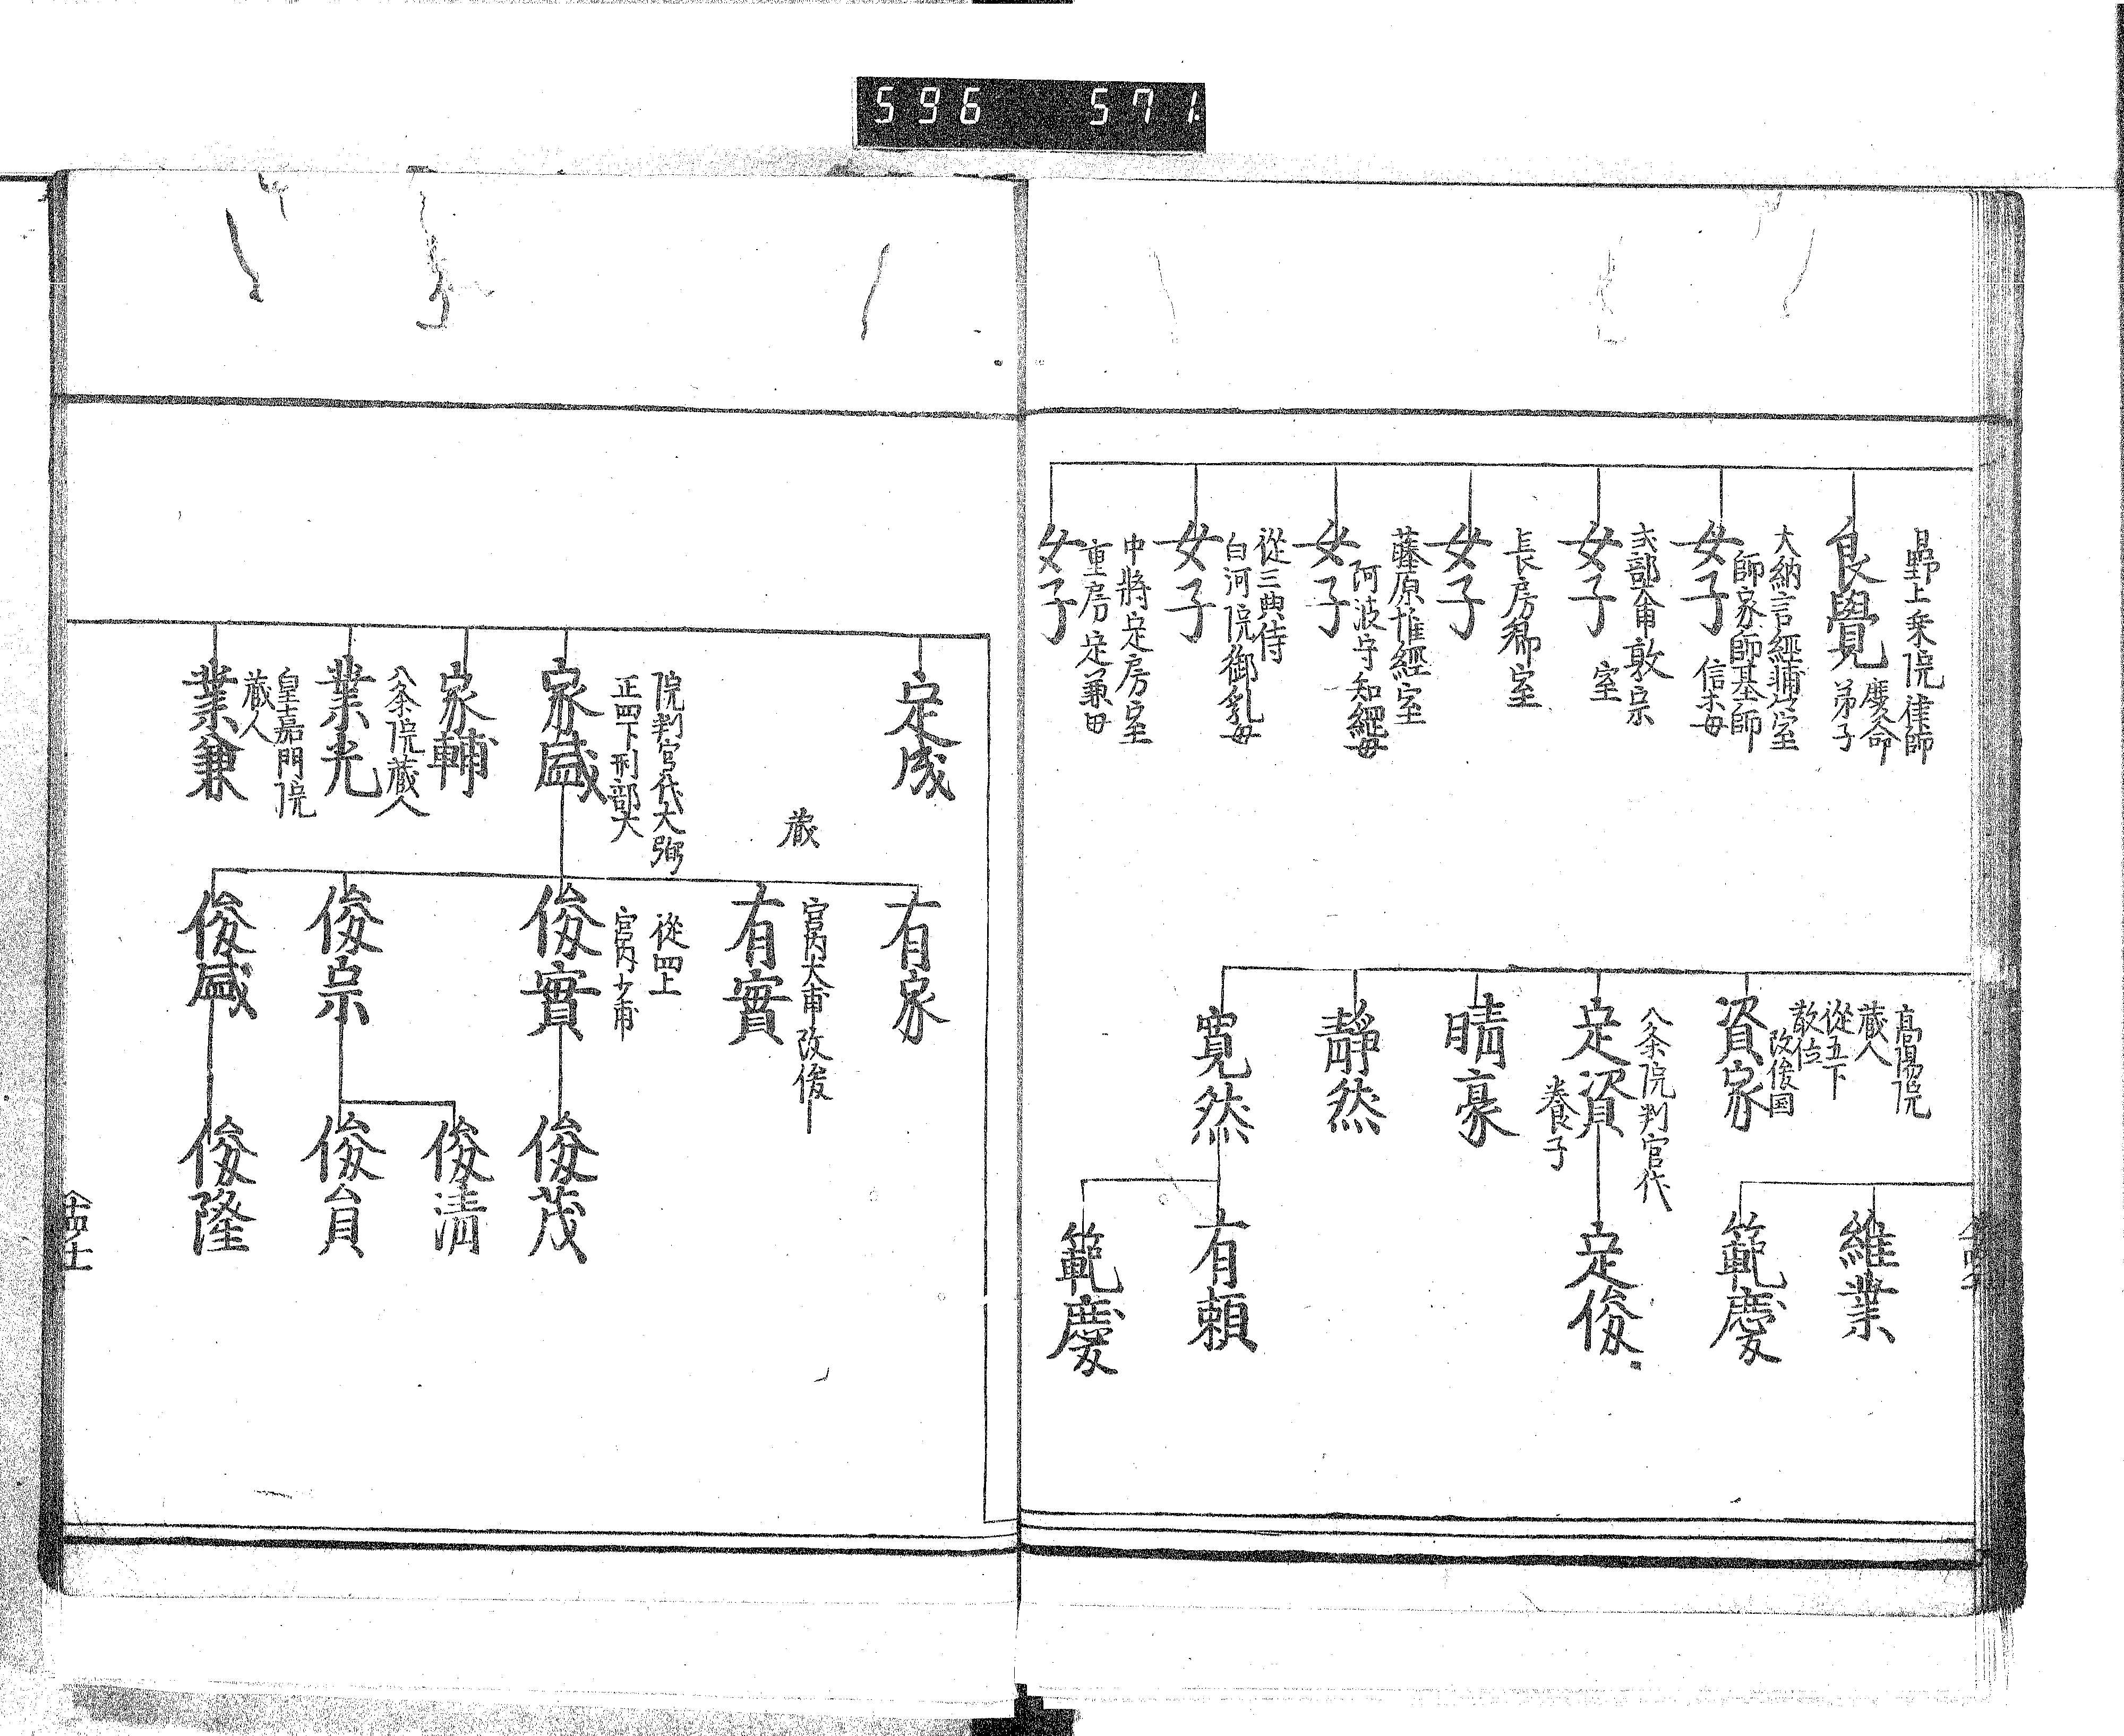 596 571
日野上乗院律師
良覺
慶命
弟子
大納言經輔室
師家師基師
女子
信宗母
式部甫敦宗
室
女子
長房卿室
女子
藤原惟經室
阿波守知綱母
女子
從三典侍
白河院御乳母
女子
中將定房室
重房定兼母
女子
高陽院
蔵人
從五下
散位
改俊国
資家
八条院判官代
定資
養子
晴豪
靜然
寛然
維業
範慶
定俊
有頼
範慶
定成
蔵
院判官代大弼
正四下刑部大
家盛
家輔
八条院蔵人
業光
皇嘉門院
蔵人
業兼
有家
宮内大甫改俊
有實
從四上
宮内少甫
俊實
俊宗
俊盛
俊茂
俊清
俊貟
俊隆